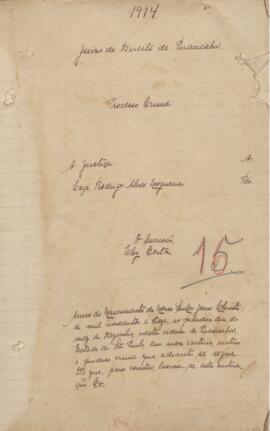 1914
Juizo de Direito de Piracicaba
Processo Crime
A Justiça A.
Cap. Rodrigo Alves Nogueira Réo
O Escrivão,
Eloy Costa
15
Anno do Nascimento de Nosso Senhor Jesus Christo
de mil novecentos e treze, ao primeiro dia do
mez de Dezembro nesta cidade de Piracicaba,
Estado de São Paulo, em meu cartorio, autúo
o processo crime que adiante se segue.
Do que, para constar, lavrei esta autua-
ção. Eu